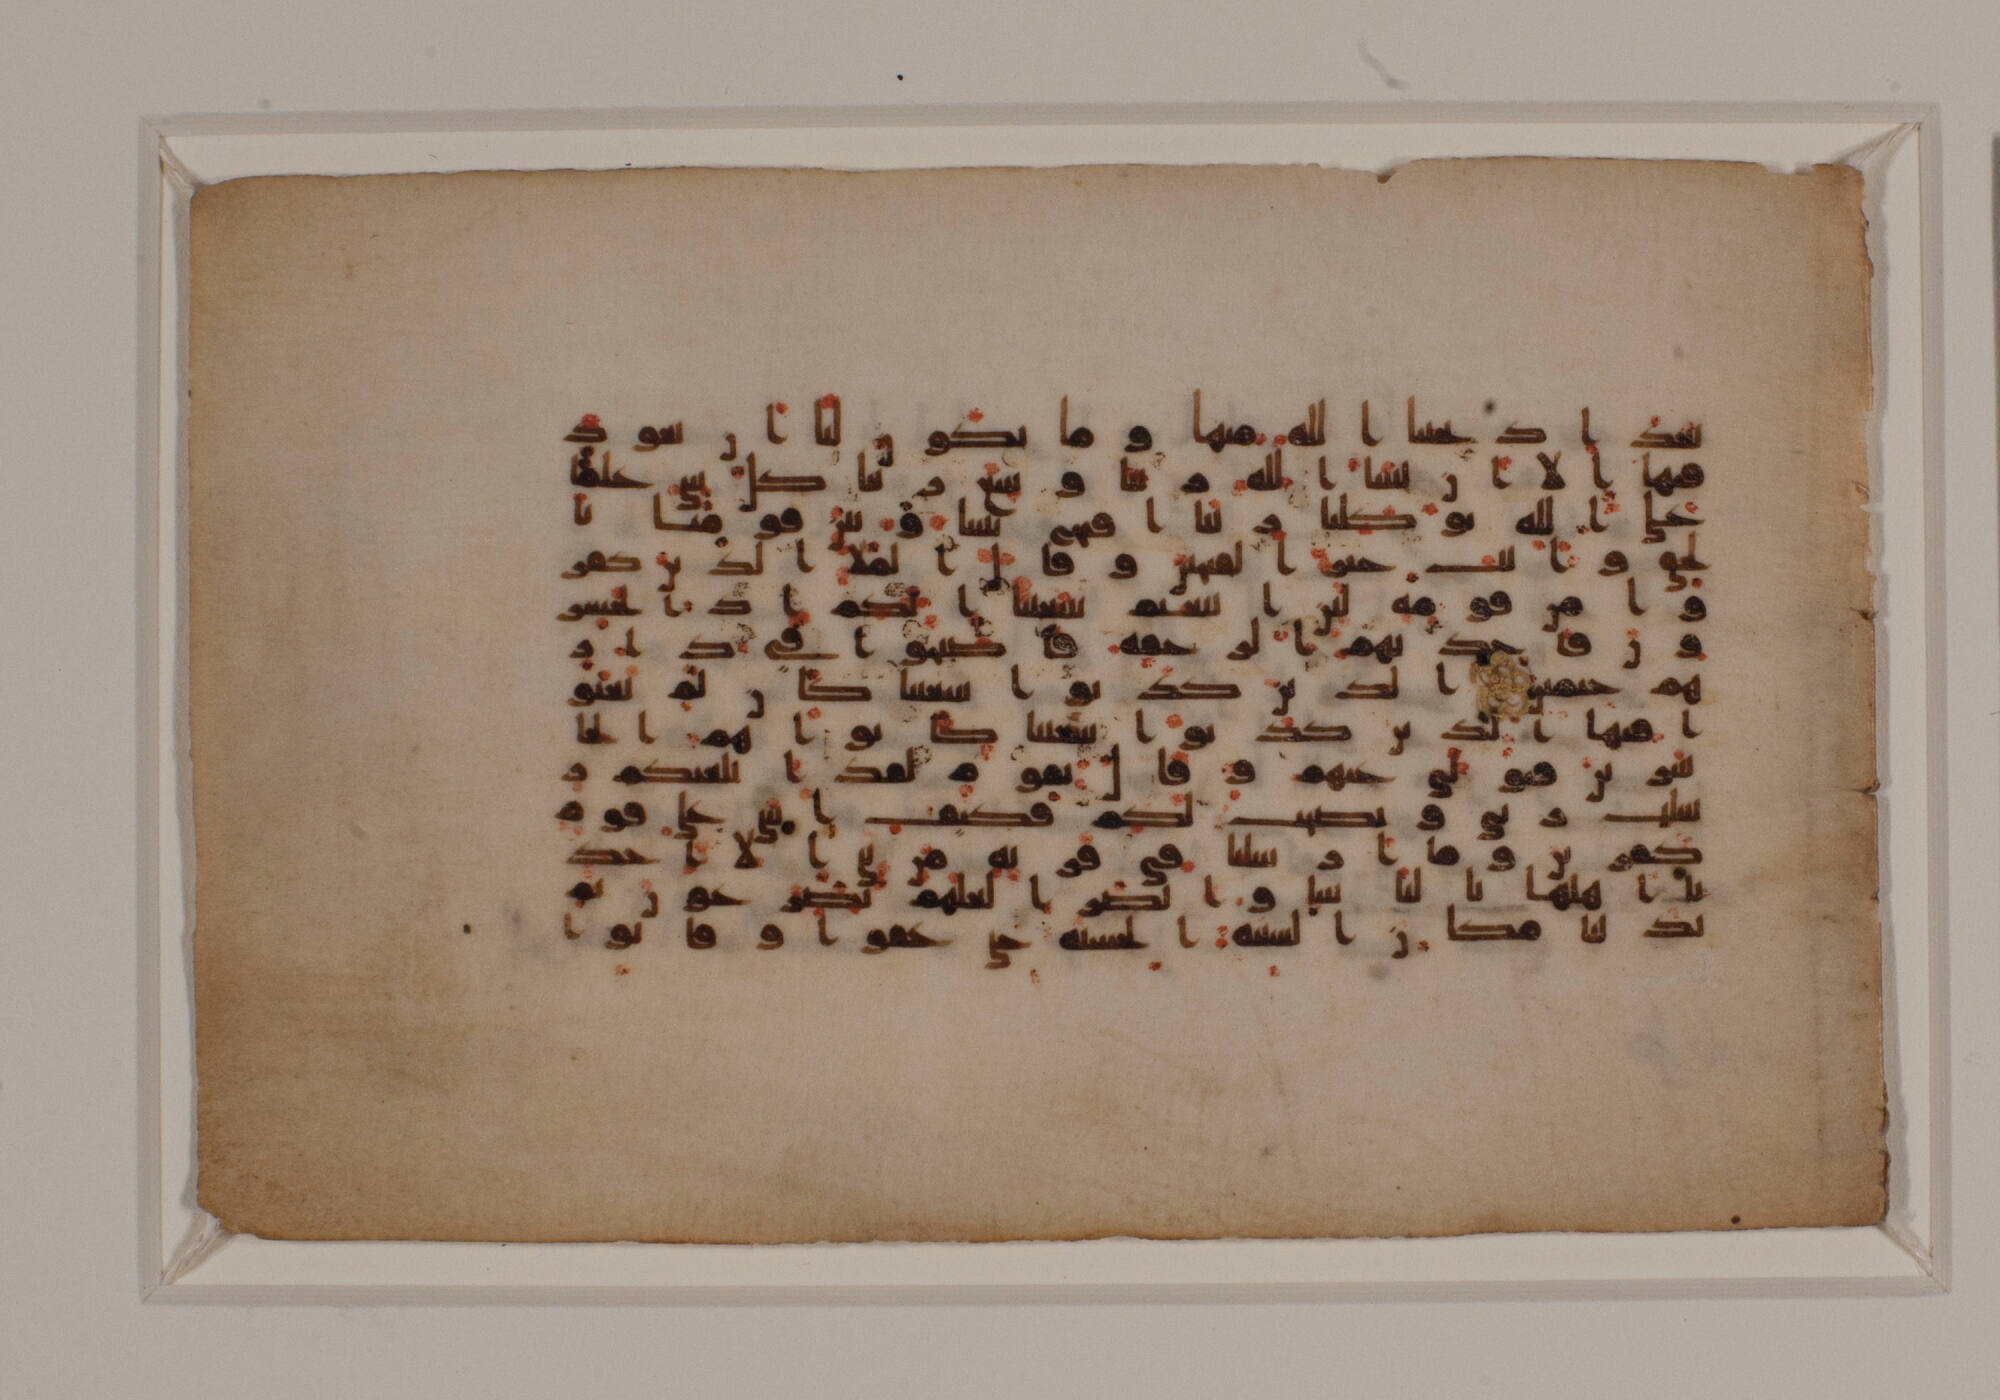 بعد اذ نجينا الله منها وما يكون لنا ان نعود
فيها الا ان يشا الله ربنا وسع ربنا كل شي علما
على الله توكلنا ربنا افتح بيننا وبين قومنا با
لحق وانت خير الفتحين وقال الملا الذين كفر
وا من قومه لئن اتبعتم شعيبا انكم اذا لخسرو
ن فاخذتهم الرجفة فاصبحوا في دار
هم جثمين الذين كذبوا شعيبا كان لم يغنو
ا فيها الذين كذبوا شعيبا كانوا هم الخا
سرين فتولى عنهم وقال يقوم لقد ابلغتكم ر
سلت ربي ونصحت لكم فكيف اسى على قوم
كفرين وما ارسلنا في قرية من نبي الا اخذ
نا اهلها بالباسا والضرا لعلهم يضرعون ثم
بدلنا مكان السيئة الحسنة حتى عفوا وقالوا